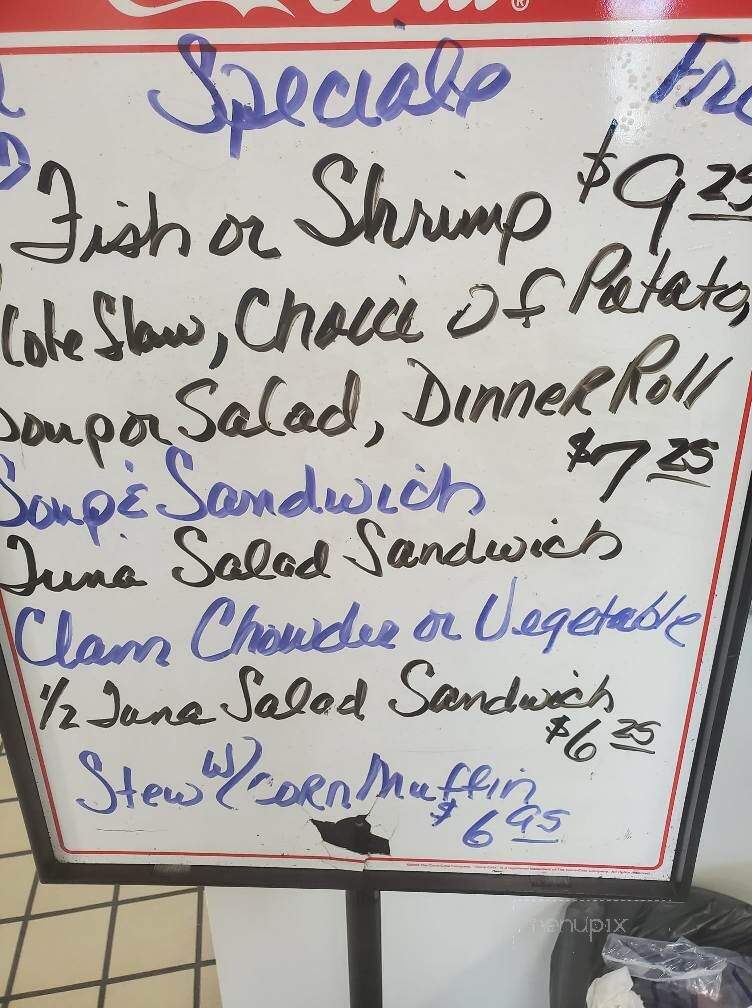 Specials
Fish or Shrimp $9.25
Cole Slaw, Choice Of Potato,
Soup or Salad, Dinner Roll
$7.25
Soup & Sandwich
Tuna Salad Sandwich
Clam Chowder or Vegetable
1/2 Tuna Salad Sandwich
$6.25
Stew w/ Corn Muffin
$6.95
menupix